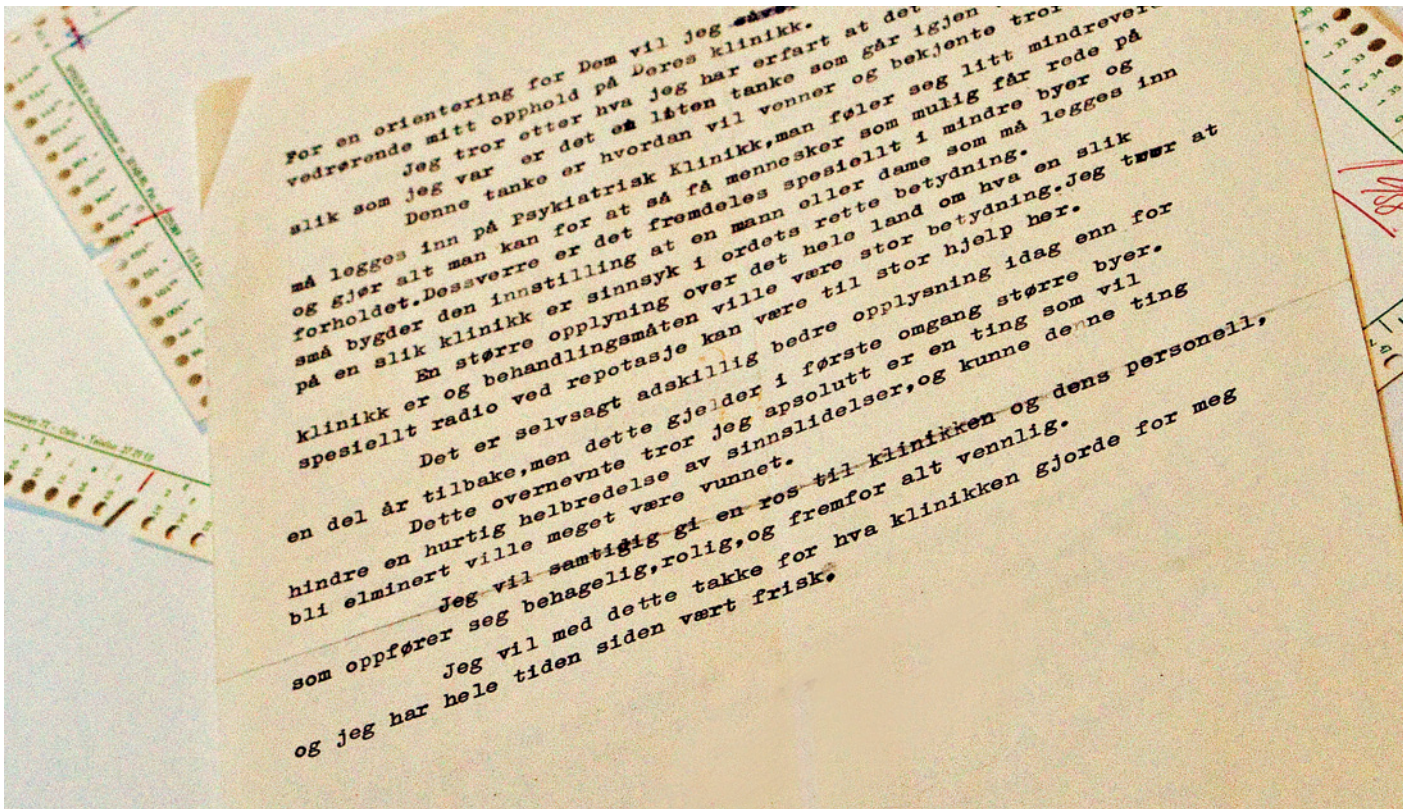 For en orientering for Dem vil jeg
vedrørende mitt opphold på Deres klinikk.
Jeg tror etter hva jeg har erfart at det
slik som jeg var er det en liten tanke som går igjen
Denne tanke er hvordan vil venner og bekjente tror
må legges inn på Psykiatrisk Klinikk,man føler seg litt
og gjør alt man kan for at så få mennesker som mulig får rede på
forholdet.Dessverre er det fremdeles spesiellt i mindre byer og
små bygder den innstilling at en mann eller dame som må legges inn
på en slik klinikk er sinnsyk i ordets rette betydning.
En større opplyning over det hele land om hva en slik
klinikk er og behandlingsmåten ville være stor betydning.Jeg at
spesiellt radio ved repotasje kan være til stor hjelp her.
Det er selvsagt adskillig bedre opplysning idag enn for
en del år tilbake,men dette gjelder i første omgang større byer.
Dette overnevnte tror jeg apsolutt er en ting som vil
hindre en hurtig helbredelse av sinnslidelser,og kunne denne ting
bli elminert ville meget være vunnet.
Jeg vil samtidig gi en ros til klinikken og dens personell,
som oppfører seg behagelig,rolig,og fremfor alt vennlig.
Jeg vil med dette takke for hva klinikken gjorde for meg
og jeg har hele tiden siden vært frisk.